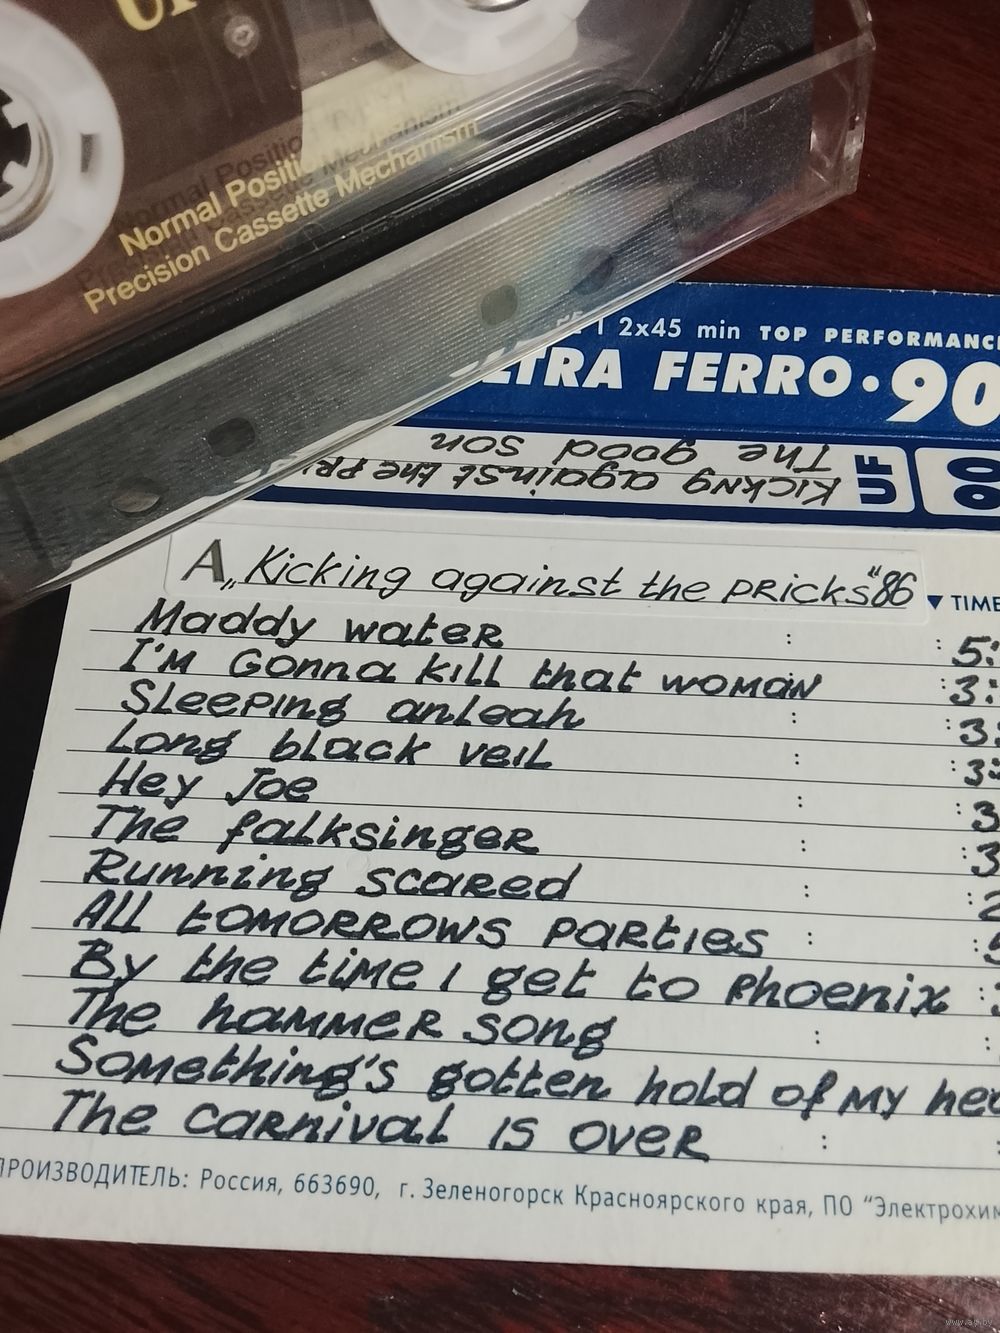 Normal Position
Precision Cassette Mechanism
2x45 min TOP PERFORMANC
LTRA FERRO·90
The good son
Kickng against the PRi
UF
90
A „Kicking against the pricks“86
▼ TIME
Maddy water : : 5:
I'm Gonna kill that woman : : 3:
Sleeping anleah : : 3:
Long black veil : : 3:
Hey Joe : 3
The falksinger : : 3
Running scared : : 2
All tomorrows parties : : 5
By the time I get to Phoenix : 3
The hammer song : :
Something's gotten hold of my hea
The carnival is over : :
ПРОИЗВОДИТЕЛЬ: Россия, 663690, г. Зеленогорск Красноярского края, ПО "Электрохим
www.ay.by